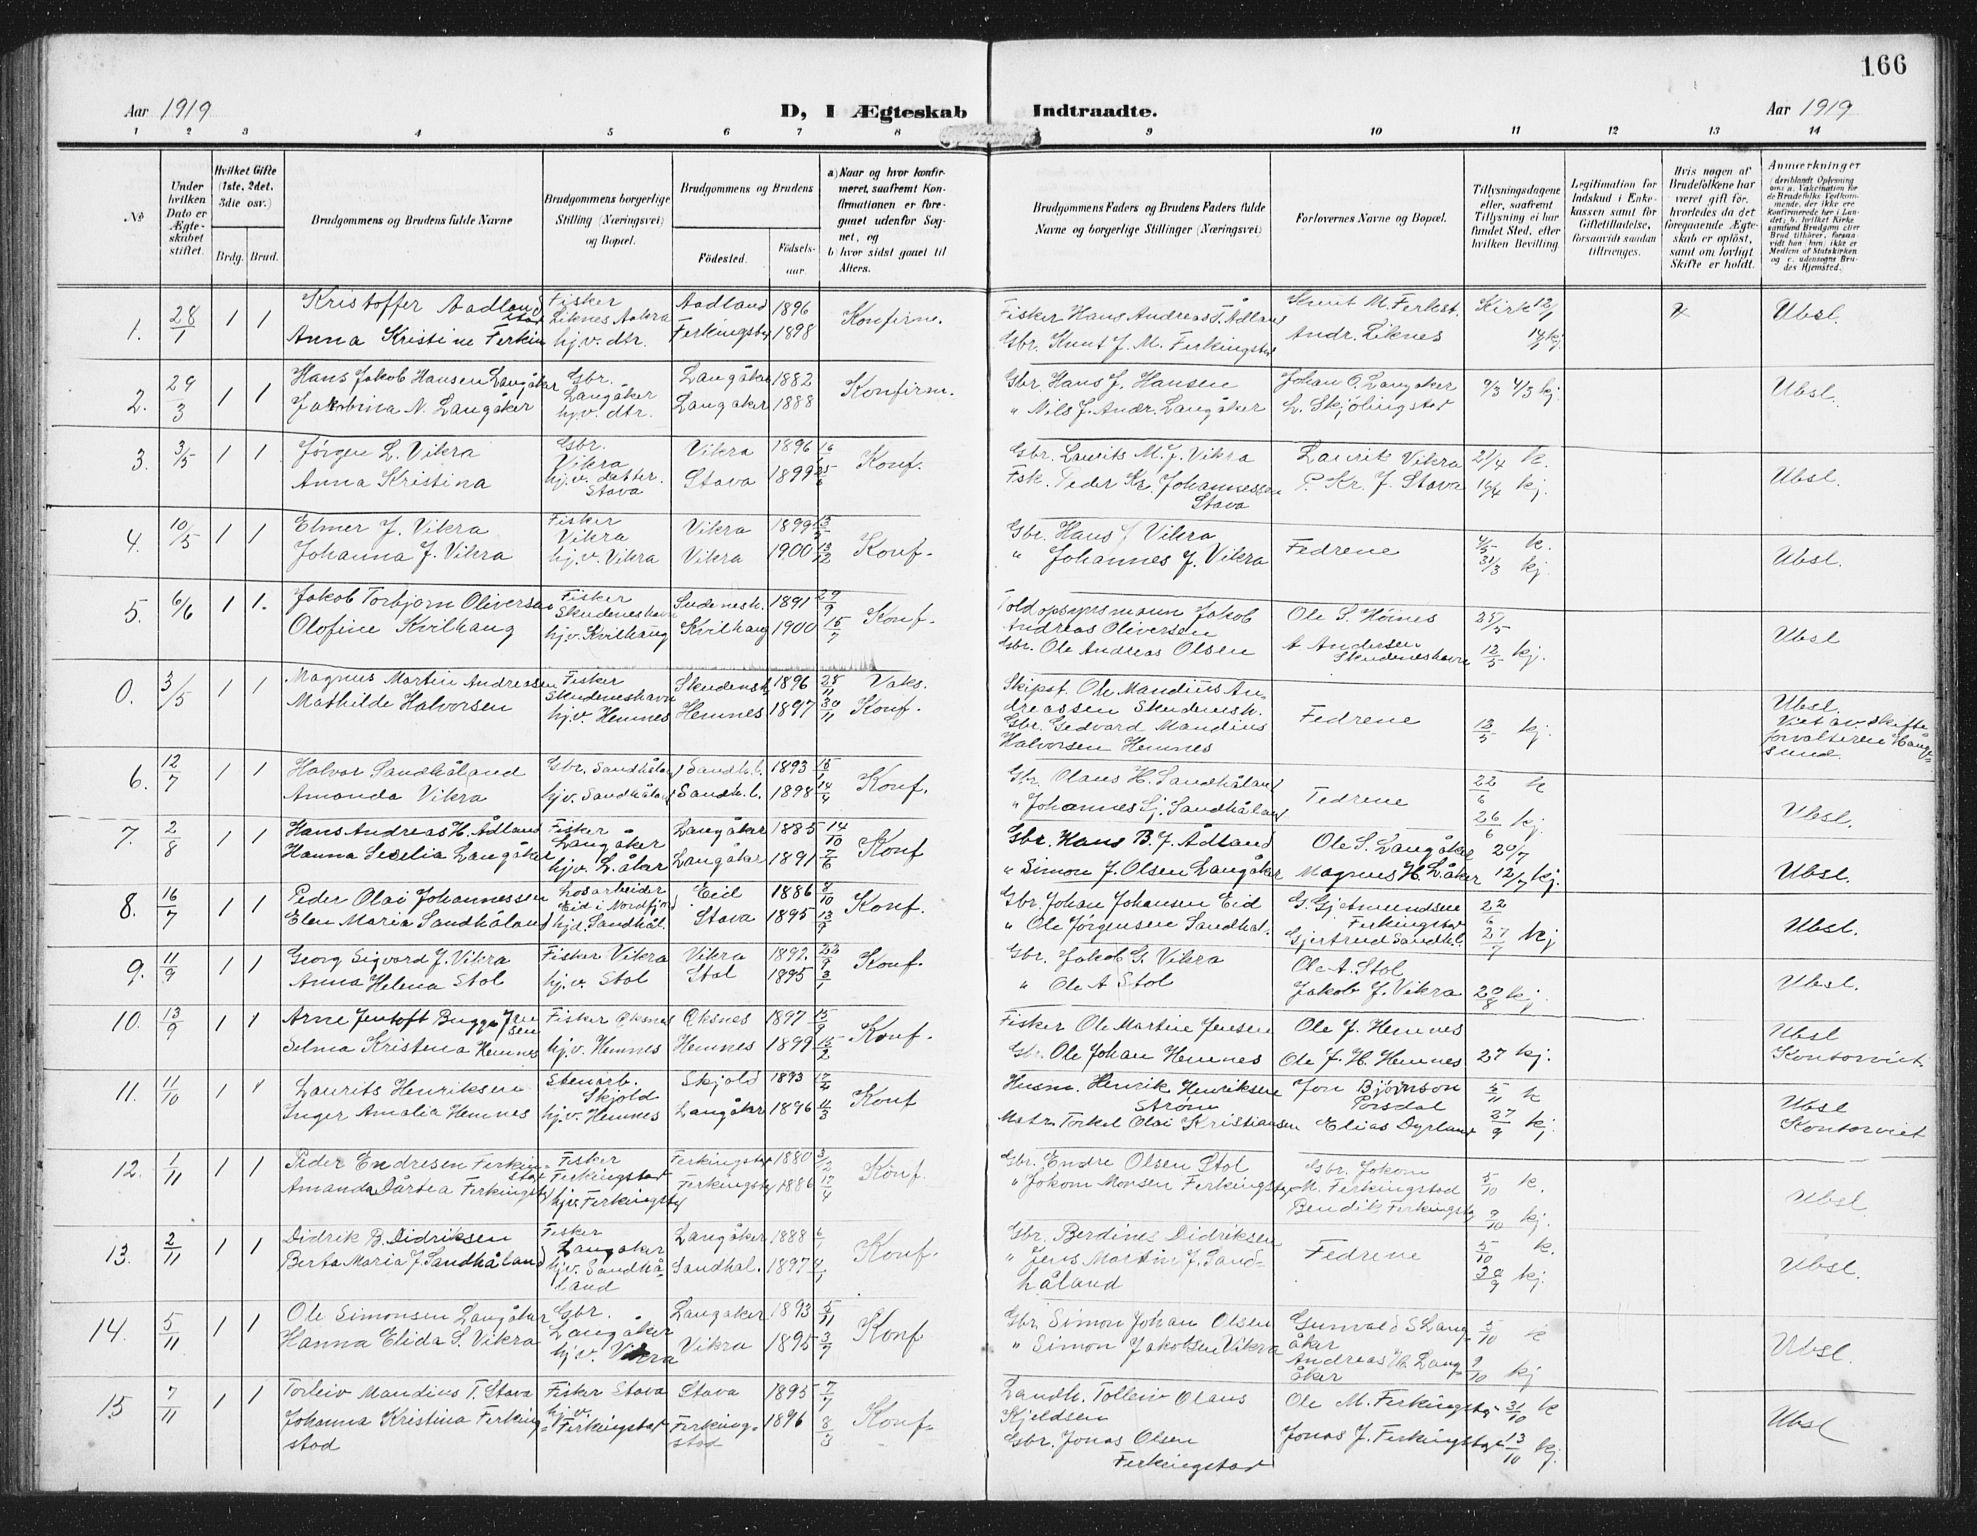 166
Aar 1919
D, I Ægteskab Indtraadte.
Aar 1919
1 2 3 4 5 6 7 8 9 10 11 12 13 14
№
Under hvilken Dato er Ægteskabet stiftet.
Hvilket Gifte (1ste, 2det, 3die osv.)
Brdg. Brud.
Brudgommens og Brudens fulde Navne
Brudgommens borgerlige Stilling (Næringsvei) og Bopæl.
Brudgommens og Brudens
Fødested.
Fødselsaar.
a) Naar og hvor konfirmeret, saafremt Konfirmationen er foregaaet udenfor Sognet, og
b) hvor sidst gaaet til Alters.
Brudgommens Faders og Brudens Faders fulde Navne og borgerlige Stillinger (Næringsvei)
Forlovernes Navne og Bopæl.
Tillysningsdagene eller, saafremt Tillysning ei har fundet Sted, efter hvilken Bevilling.
Legitimation for Indskud i Enkekassen samt for Giftetilladelse, forsaavidt saadan tiltrænges.
Hvis nogen af Brudefolkene har været gift før, hvorledes da det foregaaende Ægteskab er opløst, samt om lovligt Skifte er holdt.
Anmerkninger
1. 28/1 1 1 Kristoffer Aadland Fisker Aadland 1896 Konfirm. Fisker Hans Andreas T. Ådland Knut M. Ferkst. Kirk 12/1 Ubsl.
Anna Kristine Ferkinstad hj.v. dtr. Ferkingstad 1898 Gbr. Knut J. M. Ferkingstad Andr. Liknes
2. 29/3 1 1 Hans Jakob Hansen Langåker Gbr. Langåker Langåker 1882 Konfirm. Gbr Hans J. Hansen Johan O. Langåker 9/3 4/3 kj. Ubsl.
Jakobina N. Langåker hj.v. dtr. Langåker 1888 " Nils J. Andr. Langåker L. Skjølingstad
3. 3/5 1 1 Jørgen L. Vikra Gbr. Vikra Vikra 1896 Konf. Gbr. Laurits M. J. Vikra Laurits Vikra 21/4 k. Ubsl.
Anna Kristina hj.v. datter. Stava Stava 1899 Fsk. Peder Kr. Johannessen Stava P. Kr. J. Stava 16/4 kj.
4. 10/5 1 1 Elmer J. Vikra Fisker Vikra Vikra 1899 Konf. Gbr. Hans J Vikra Fedrene 4/5 k. Ubsl.
Johanna J. Vikra hj.v. Vikra Vikra 1900 " Johannes J. Vikra 31/3 kj.
5. 6/6 1 1. Jakob Torbjørn Oliversen Fisker Skudeneshavn Sudenesh. 1891 29/9 Konf. Toldopsynsmann Jakob Andreas Oliversen Ole S. Høines 25/5 Ubsl
Olofine Kvilhaug hj.v. Kvilhaug Kvilhaug 1900 15/7 Gbr. Ole Andreas Olsen A Andersen Skudeneshavn 12/5 kj.
0. 3/5 1 1 Magnus Martin Andreassen Fisker Skudeneshavn Skudensh. 1896 28/11 Vaks. Skipsf. Ole Mandius Andreassen Skudenesh. Fedrene Ubsl. Viet av skifteforvalteren Haugesund.
Mathilde Halvorsen hj.v. Hemnes Hemnes 1897 30/11 Konf. Gbr. Gedvard Mandius Halvorsen Hemnes 13/5 kj.
6. 12/7 1 1 Halvor Sandhåland Gbr. Sandhåland Sandh.l. 1893 Konf. Gbr. Olaus H. Sandhåland Fedrene 22/6 k Ubsl.
Amanda Vikra hj.v. Sandhåland Sandh.l. 1898 14/4 " Johannes Lj. Sandhåland 26/6 kj.
7. 2/8 1 1 Hans Andreas H. Ådland Fisker Langåker Langåker 1885 14/10 Konf Gbr. Hans B. J. Ådland Ole S. Langåker 20/7 Ubsl.
Hanna Secelia Langåker hj.v. L.åker Langåker 1891 " Simon J. Olsen Langåker Magnus H. L.åker 12/7 kj.
8. 16/7 1 1 Peder Olai Johannessen Losarbeider Eid i Nordfjord Eid 1886 8/10 Konf. Gbr. Johan Johansen Eid G. Gjetmundsen Ferkingstad 22/6 Ubsl.
Elen Maria Sandhåland hj.d. Sandhål. Stava 1895 13/9 " Ole Jørgensen Sandhal. Gjertrud Sandhl. 27/7 kj
9. 11/9 1 1 Georg Sigvard J. Vikra Fisker Vikra Vikra 1892. Konf. Gbr. Jakob G. Vikra Ole A. Stol Ubsl.
Anna Helena Stol hj.v. Stol Stol 1895 3/1 " Ole A Stol Jakob J. Vikra 20/8 kj.
10. 13/9 1 1 Arne Jentoft Bugge Jensen Fisker Øksnes Øksnes 1897 15/9 Konf. Fisker Ole Martin Jensen Ole J. Hemnes Ubsl Kontorviet
Selma Kristena Hemnes hj.v. Hemnes Hemnes 1899 15/2 Gbr. Ole Johan Hemnes Ole J. H. Hemnes 27 kj.
11. 11/10 1 1 Laurits Henriksen Stenarb. Skjold Skjold 1893 17/4 Konf Husm. Henrik Henriksen Strøm Jon Bjørnson Porsdal 5/11 k Ubsl Kontorviet
Inger Amalia Hemnes hj.v. Hemnes Langåker 1896 11/3 Mstr. Torkel Olai Kristiansen Elias Dyrland 27/9 kj.
12. 1/11 1 1 Peder Endresen Ferkingstad Fisker Ferkingstad Ferkingstad 1880 3/2 Konf. Gbr. Endre Olsen Stol Gbr. Jokom M. Ferkingstad 5/10 k. Ubsl.
Amanda Dårtea Ferkingstad hj.v. Ferkingstad Ferkingstad 1886 17/4 " Jokom Monsen Ferkingstad Bendik Ferkingstad 9/10 kj.
13. 2/11 1 1 Didrik B. Didriksen Fisker Langåker Langåker 1888 6/1 Konf. Gbr. Berdines Didriksen Fedrene 5/10 k. Ubsl.
Berta Maria J. Sandhåland hj.v. Sandhåland Sandhal. 1897 4/1 " Jens Martin J. Sandhåland 30/9 kj.
14. 5/11 1 1 Ole Simonsen Langåker Gbr. Langåker Langåker 1893 5/11 Konf Gbr. Simon Johan Olsen Gunvald S Langåker 5/10 k Ubsl.
Hanna Elida S. Vikra hj.v. Vikra Vikra 1895 3/7 " Simon Jakobsen Vikra Andreas H. Langåker 9/10 kj
15 7/11 1 1 Torleiv Mandius T. Stava Fisker Stava Stava 1895 7/7 Konf. Landh. Tolleiv Olaus Kjeldsen Ole M. Ferkingstad 31/10 k Ubsl
Johanna Kristina Ferkingstad hj.v. Ferkingstad Ferkingstad 1896 8/3 Gbr. Jonas Olsen Ferkingstad Jonas J. Ferkingstad 13/10 kj.